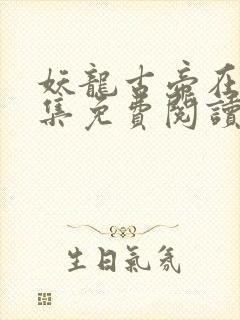 妖龍古帝在
集免費閱讀
生日氣氛